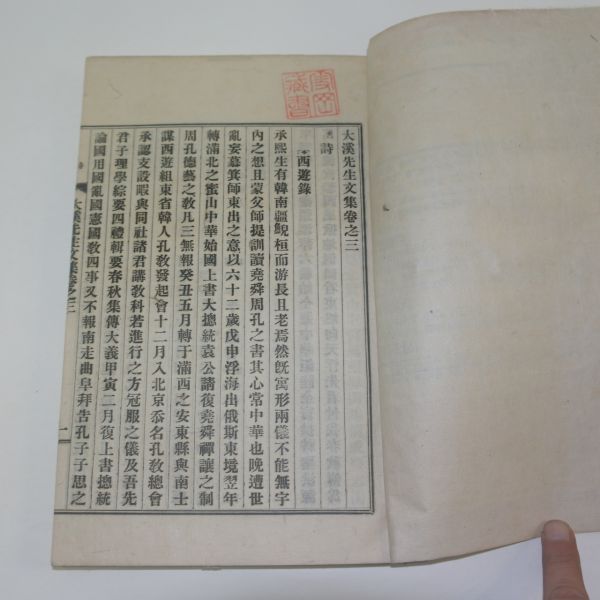 大溪先生文集卷之三
詩
西遊錄
承熙生有韓南疆鯢桓而游長且老焉然旣寓形兩儀不能無字
內之想且蒙父師提訓讀堯舜周孔之書其心常中華也晚遭世
亂妄慕箕師東出之意以六十二歲戊申浮海出俄斯東境翌年
轉滿北之蜜山中華始國上書大摠統袁公請復堯舜禪讓之制
周孔德藝之敎凡三無報癸丑五月轉于滿西之安東縣與南士
謀西遊組東省韓人孔敎發起會十二月入北京忝名孔敎總會
承認支設暇與同社諸君講敎科若進行之方冠服之儀及吾先
君子理學綜要四禮輯要春秋集傳大義甲寅二月復上書摠統
論國用國亂國憲國敎四事又不報南走曲阜拜告孔子子思之
大溪先生文集卷之三
一
藏書